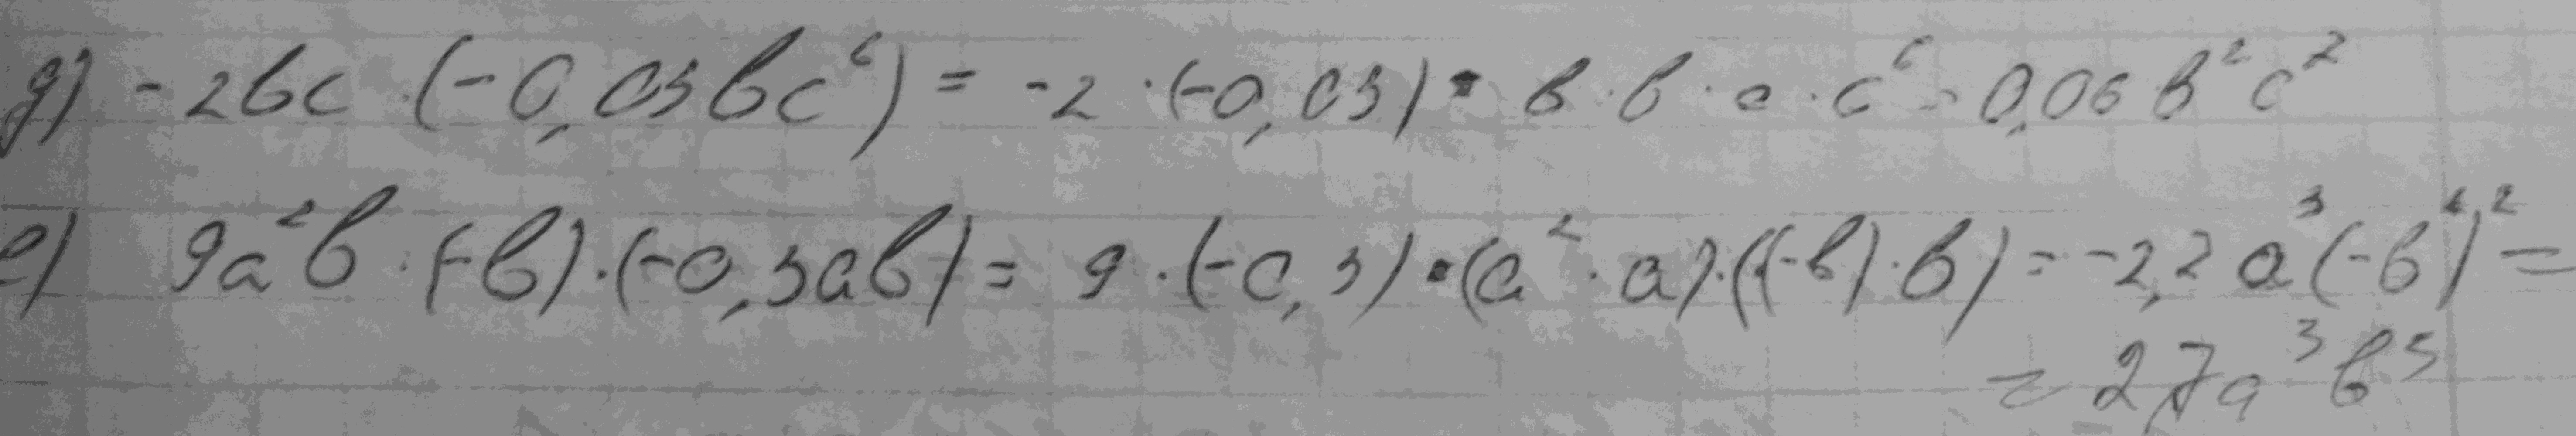 д) -2bc · (-0,03bc⁶) = -2 · (-0,03) · b · b · c · c⁶ = 0,06 b² c⁷
е) 9a²b · (-b) · (-0,3ab) = 9 · (-0,3) · (a² · a) · ((-b) · b) = -2,7 a³ (-b)² =
= 2,7a³b³